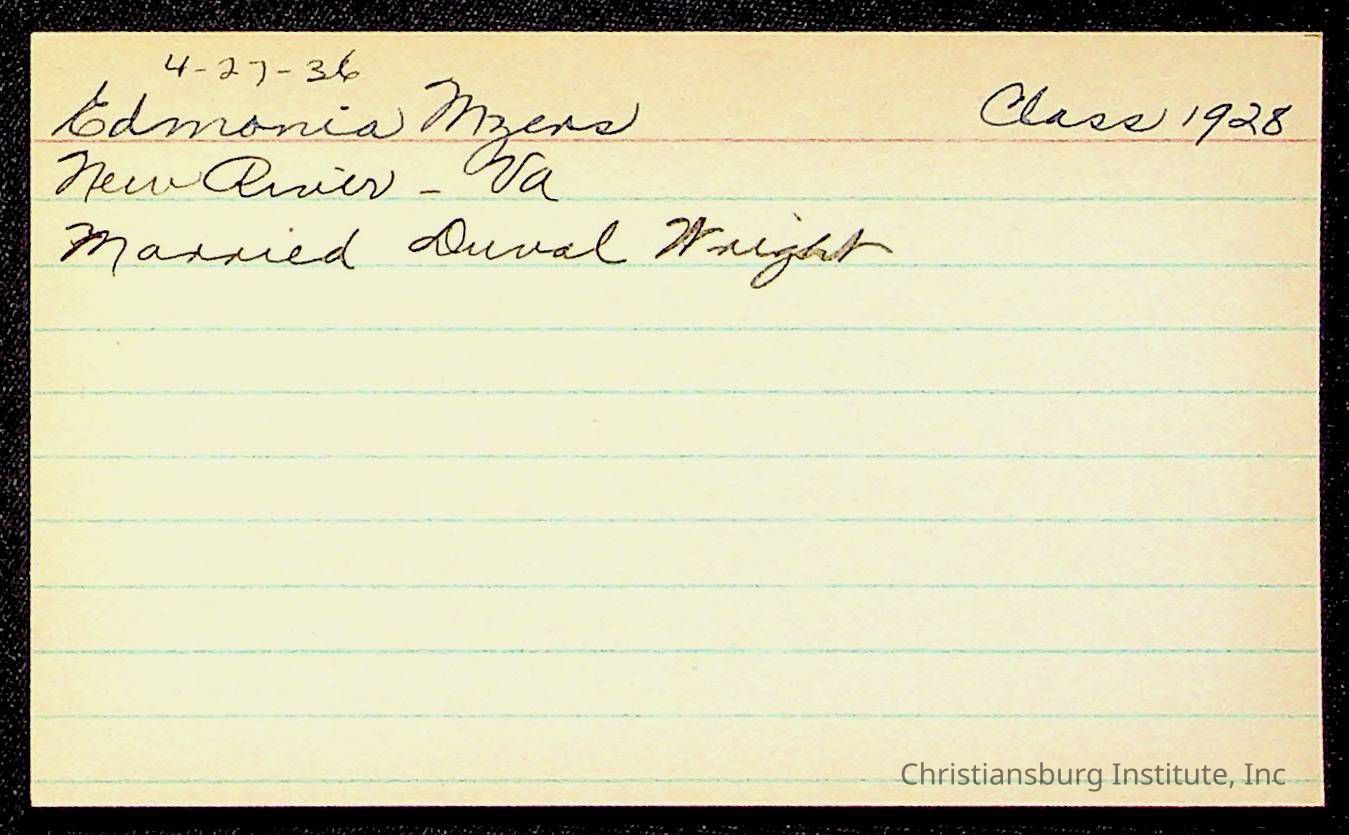 4-27-36
Edmonia Myers Class 1928
New River - Va
Married Duval Wright
Christiansburg Institute, Inc